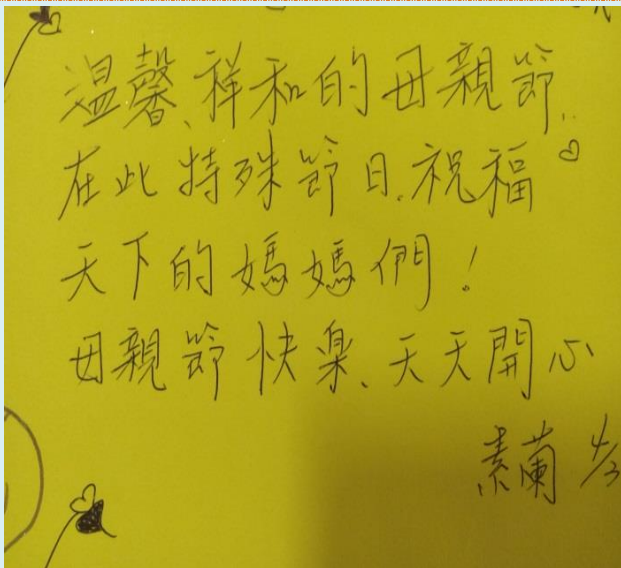 溫馨、祥和的母親節..
在此特殊節日.祝福
天下的媽媽們！
母親節快樂、天天開心
素蘭 4/3